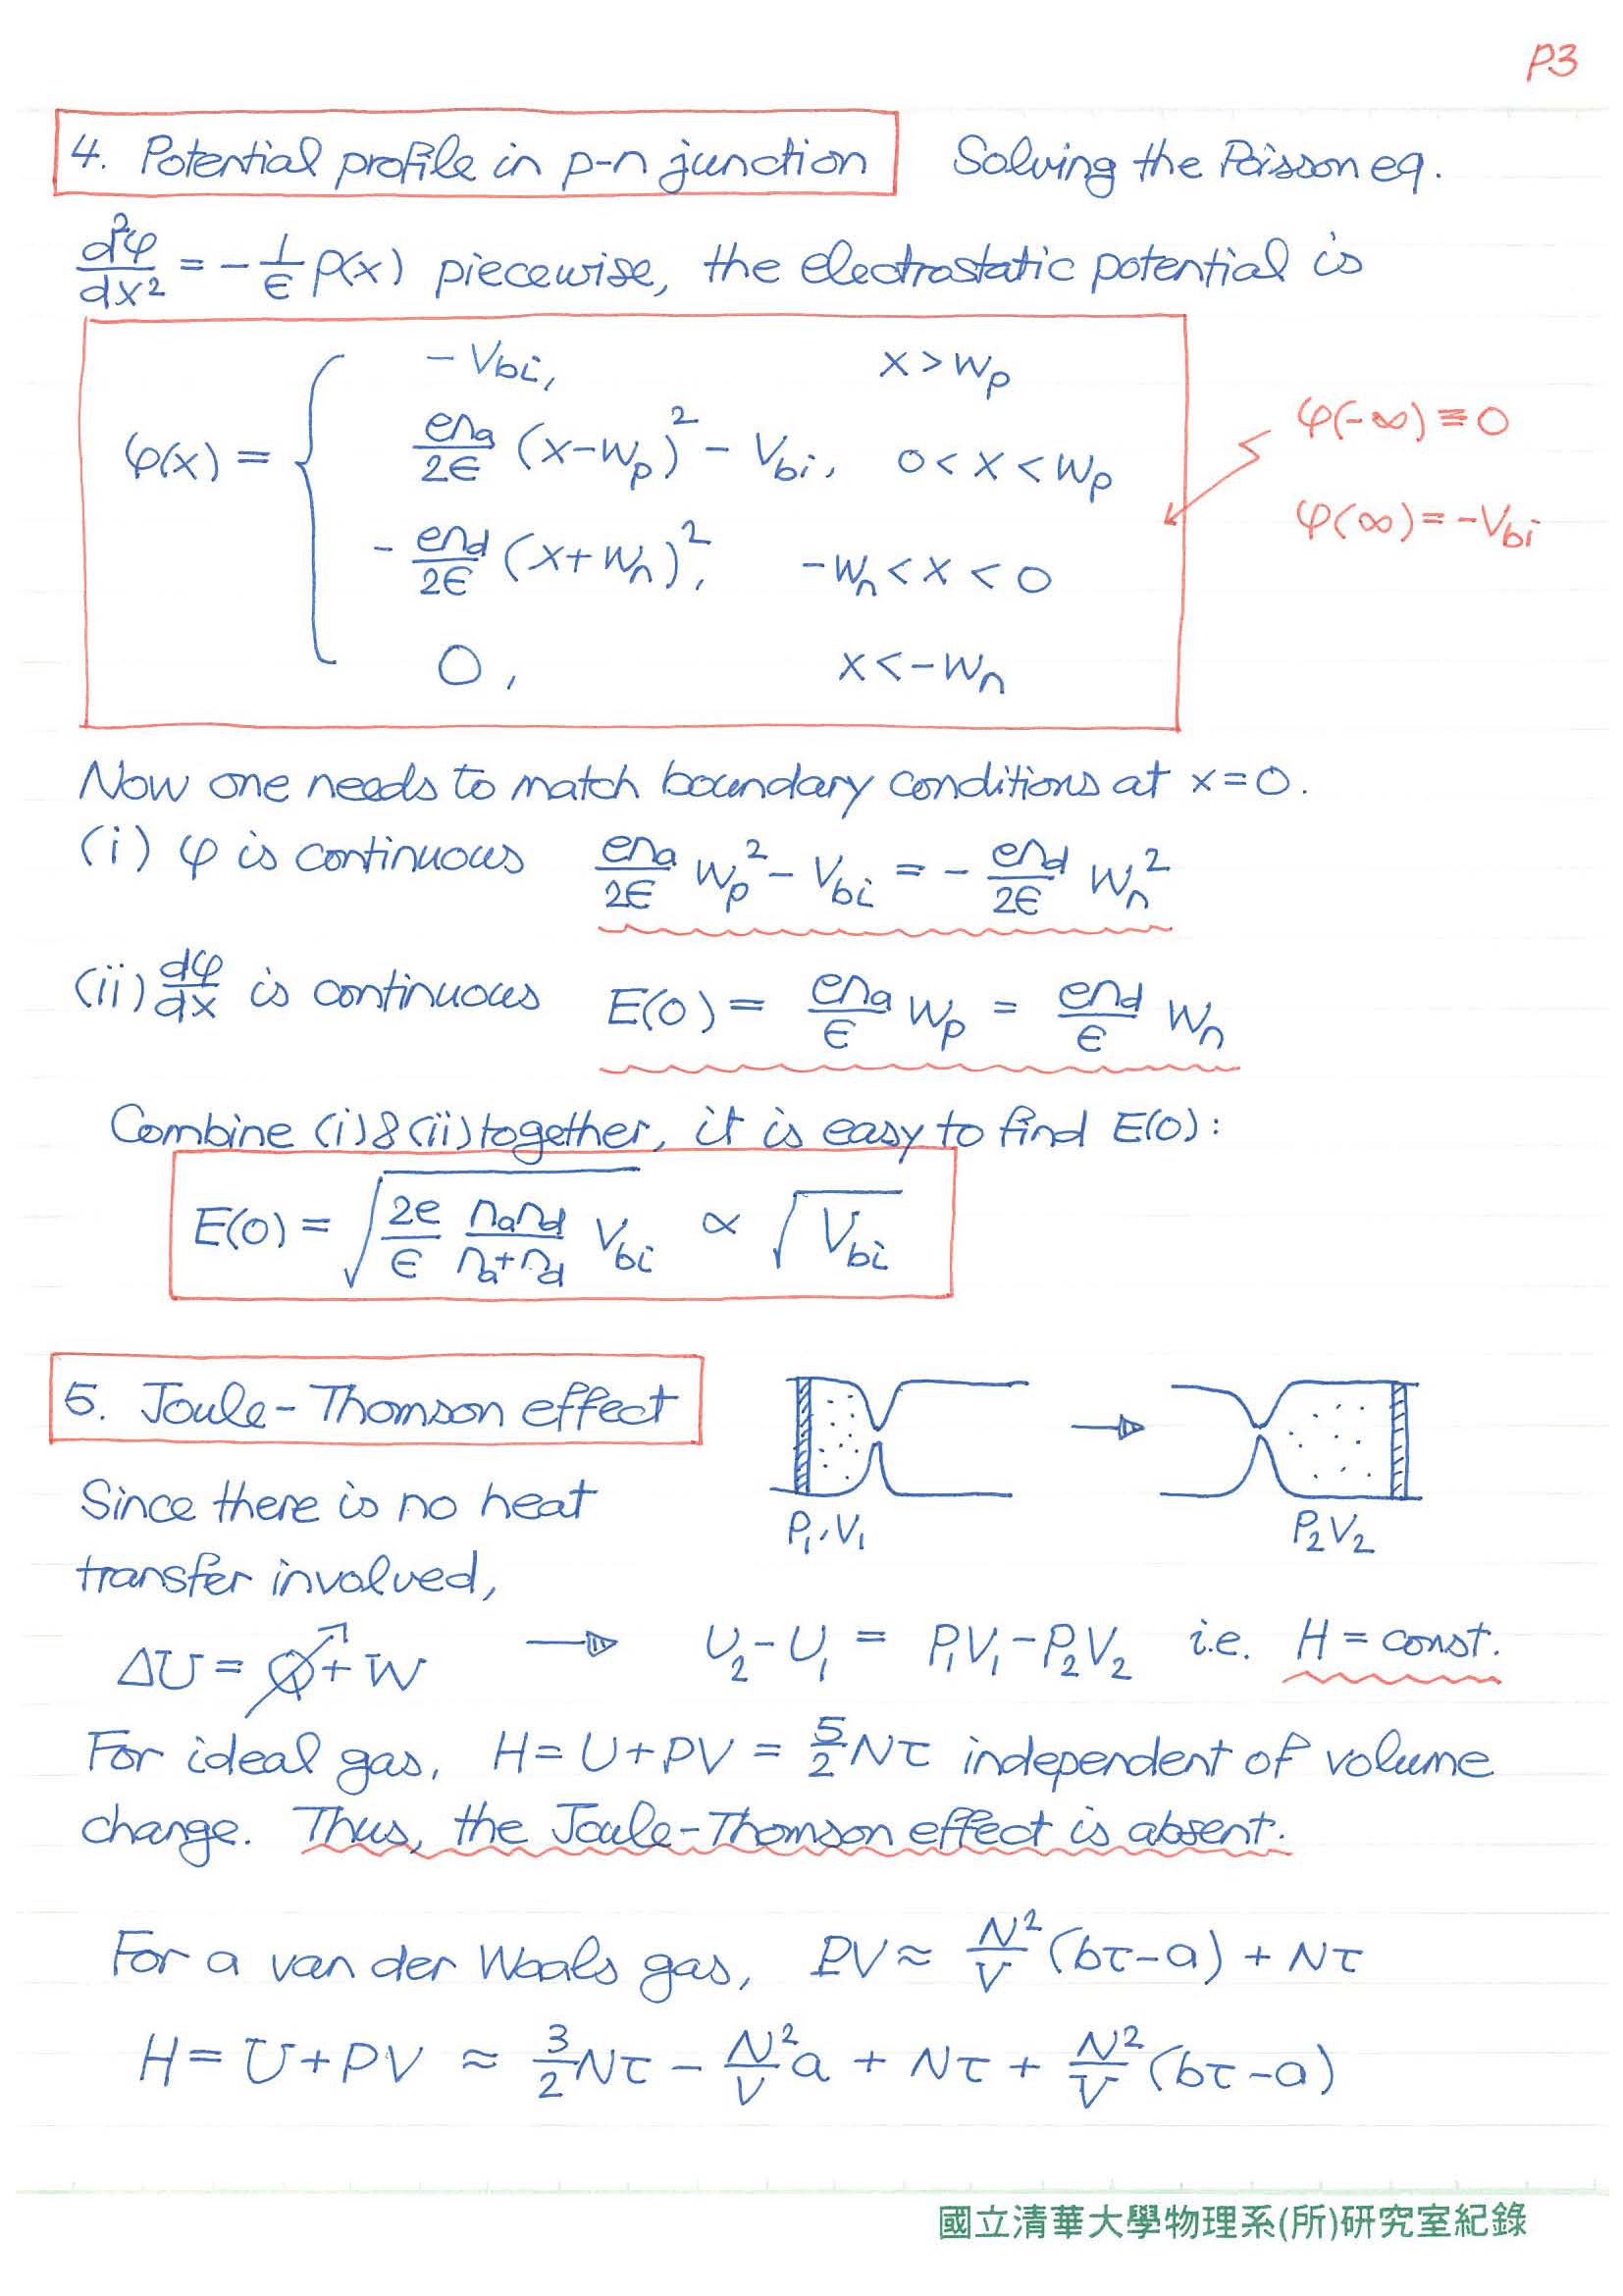 P3
4. Potential profile in p-n junction Solving the Poisson eq.
d²φ/dx² = - 1/ε ρ(x) piecewise, the electrostatic potential is
φ(x) = { - Vbi, x > Wp
ena/2ε (x-Wp)² - Vbi, 0 < x < Wp
- end/2ε (x+Wn)², -Wn < x < 0
0, x < -Wn
φ(-∞) ≡ 0
φ(∞) = -Vbi
Now one needs to match boundary conditions at x=0.
(i) φ is continuous ena/2ε Wp² - Vbi = - end/2ε Wn²
(ii) dφ/dx is continuous E(0) = ena/ε Wp = end/ε Wn
Combine (i) & (ii) together, it is easy to find E(0):
E(0) = √(2e/ε nand/(na+nd) Vbi) ∝ √Vbi
5. Joule-Thomson effect
P₁,V₁
P₂V₂
Since there is no heat
transfer involved,
ΔU = Q + W → U₂-U₁ = P₁V₁-P₂V₂ i.e. H = const.
For ideal gas, H = U+PV = 5/2 Nτ independent of volume
change. Thus, the Joule-Thomson effect is absent.
For a van der Waals gas, PV ≈ N²/V (bτ-a) + Nτ
H = U+PV ≈ 3/2 Nτ - N²/V a + Nτ + N²/V (bτ-a)
國立清華大學物理系(所)研究室紀錄